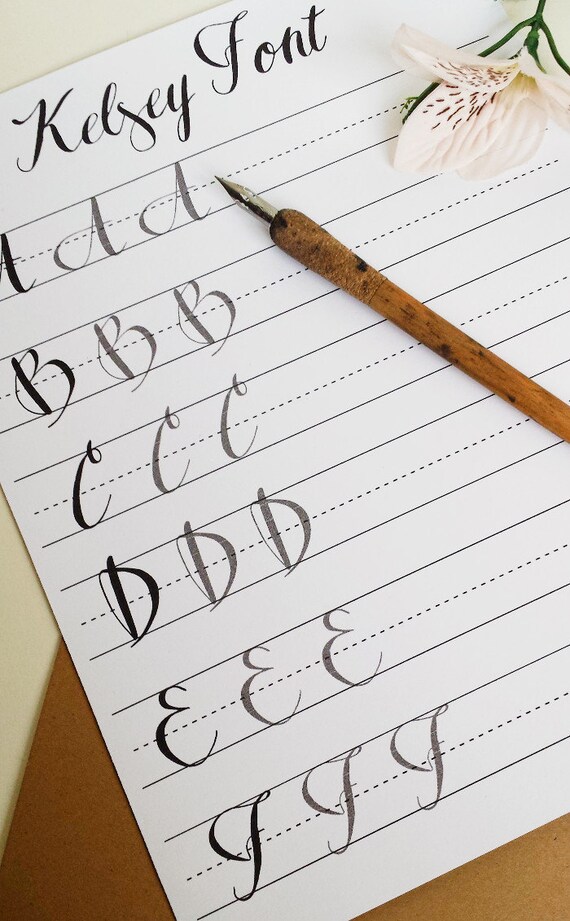 Kelsey Font
A A A
B B B
C C C
D D D
E E E
F F F